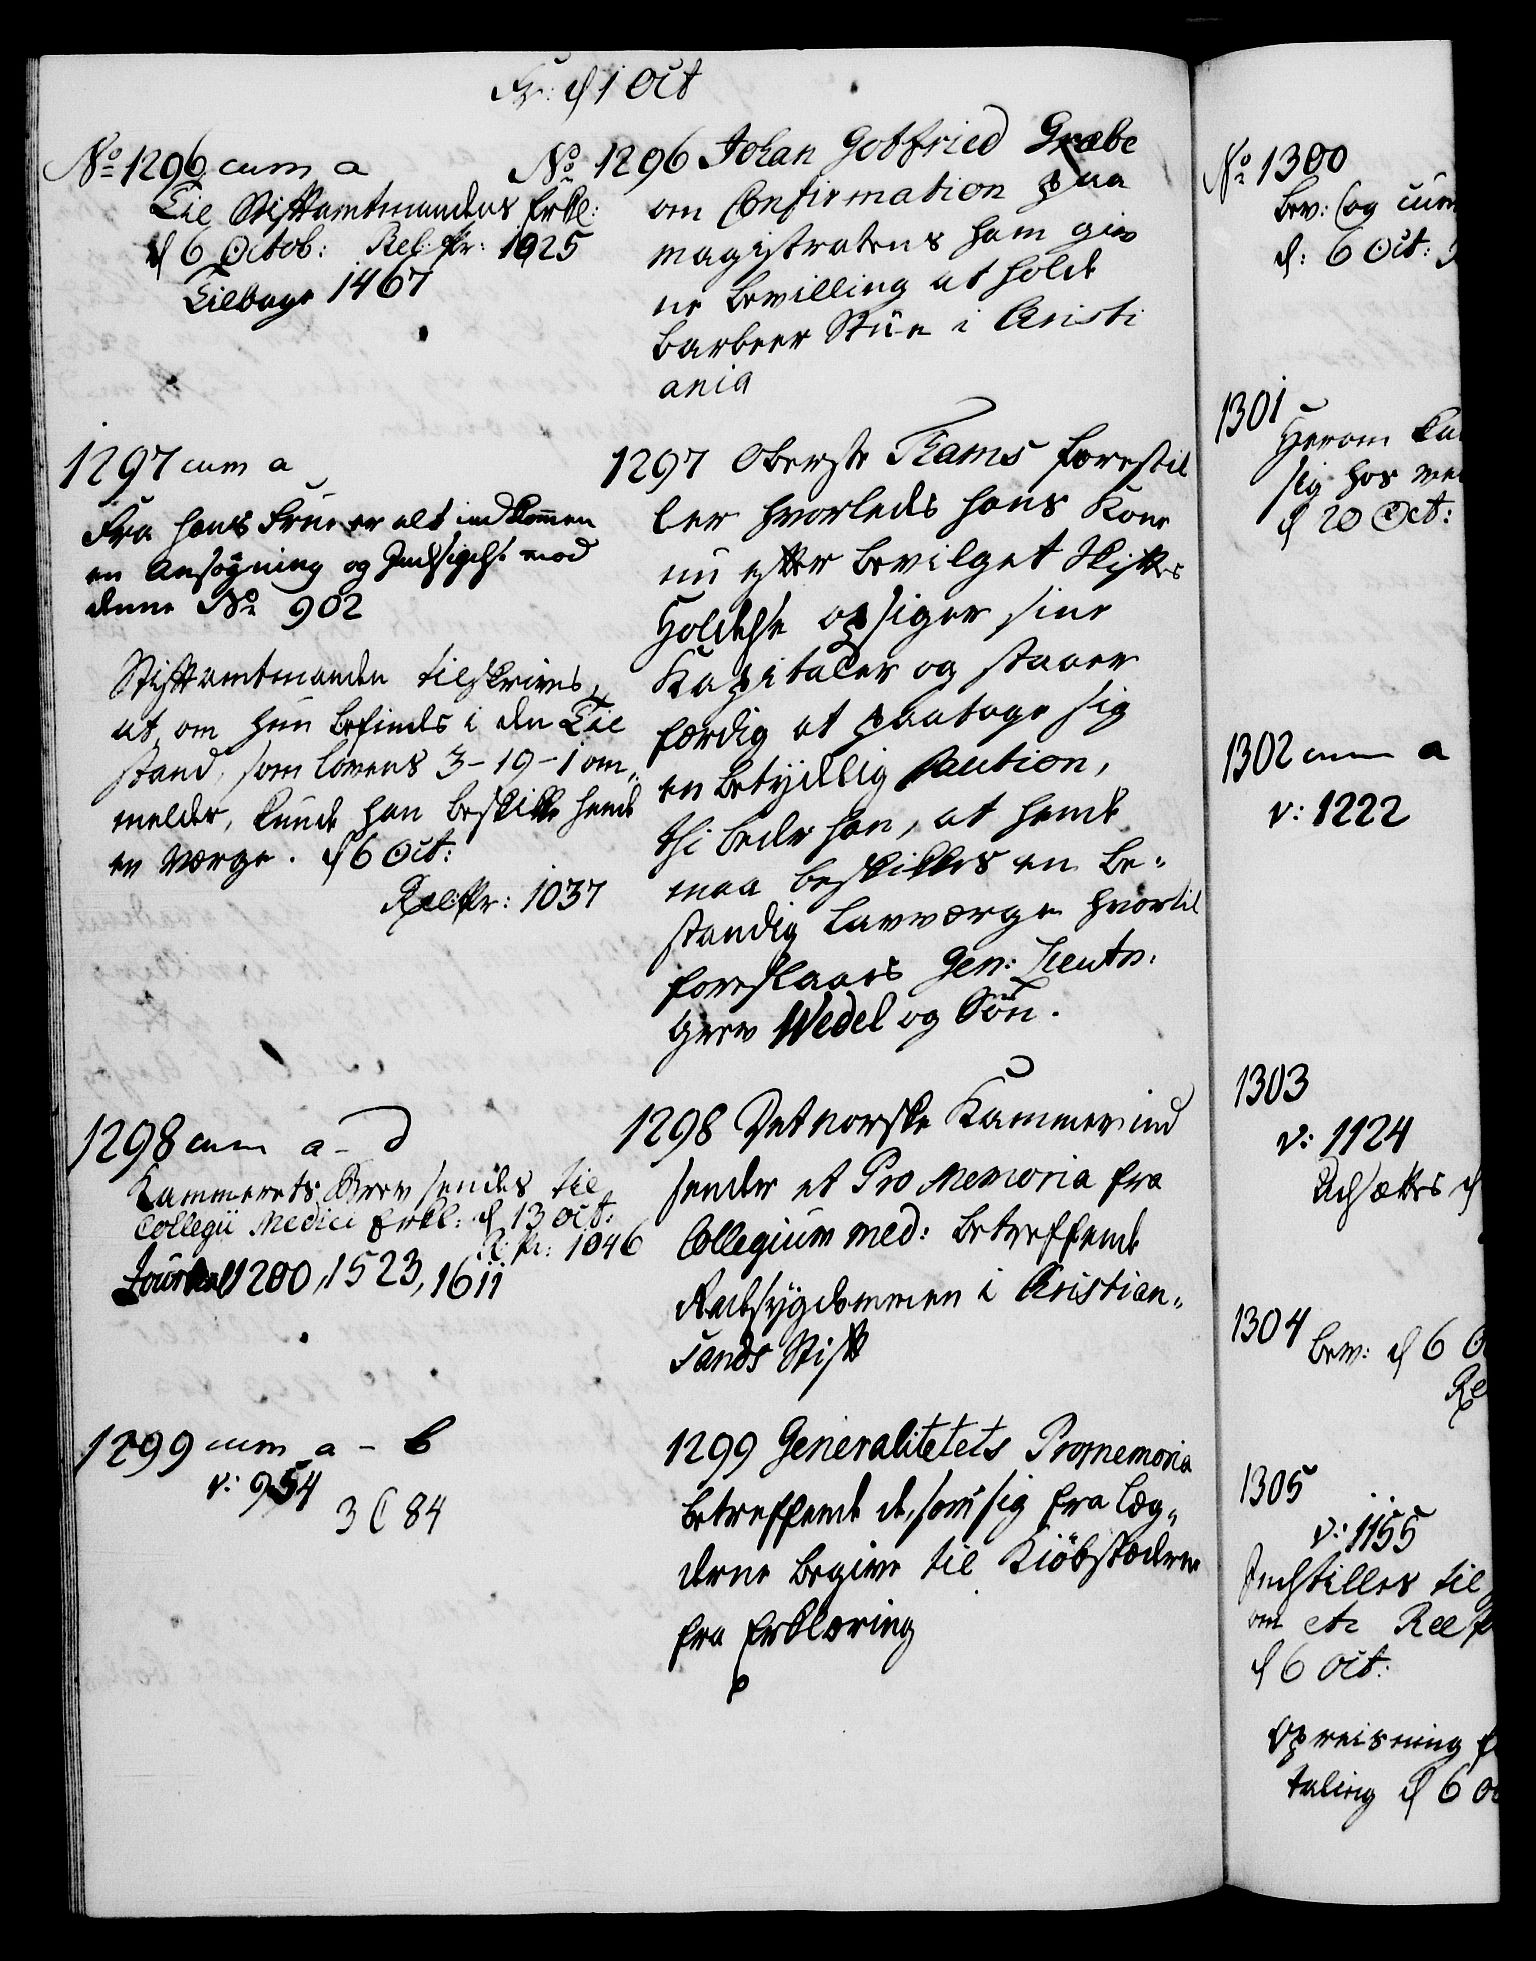 Fr: d 1 Oct
No 1296 cum a
Til Stiftamtmandens Erkl:
d 6 Octob: Ref. pr: 1025
Tilbage 1467
No 1296 Johan Gotfried Græbe
om Confirmation paa
magistratens ham giv
ne bevilling at holde
barbeer Stue i Christi
ania
1297 cum a
Fra hans Frue er alt indkommen
en Ansøgning og Indsigelse mod
denne No 902
Stiftamtmanden tilskrives,
at om hun befindes i den Til
stand, som lovens 3-19-1 om„
melder, kunde han beskikke hende
en Værge. d 6 Oct:
Ref pr: 1037
1297 Oberste Rams forestil
ler hvorledes hans Kone
nu efter bevilget Skiftes
Holdelse opsiger sine
Kapitaler og staaer
færdig at paatage sig
en betydelig Caution,
thi beder han, at hende
maa beskikkes en be„
standig Lavværge hvortil
foreslaaes Gen: Lieutn.
Grev Wedel og Søn.
1298 cum a - d
Kammerets Brev sendes til
Collegii Medici Erkl: d 13 Oct:
R. pr: 1046
Journal 1200, 1523, 1611
1298 Det norske Kammer ind
sender et Pro Memoria fra
Collegium med: betreffende
Radesygdommen i Christian„
sands Stift
1299 cum a - b
v: 954
3 C 84
1299 Generalitetets Promemoria
betreffende de, som sig fra Læg„
derne begive til Kiöbstæderne
fra Erklæring
No 1300
Bev: (og cum
d: 6 Oct:
1301
Herom
sig hos
d 20 Oct:
1302 cum a
v: 1222
1303
v: 1124
Udsættes d
1304
Bev: d 6 O
Re
1305
v: 1155
Indstilles til
om etc Ref p
d 6 Oct:
Opreisning f
taling d 6 Oc